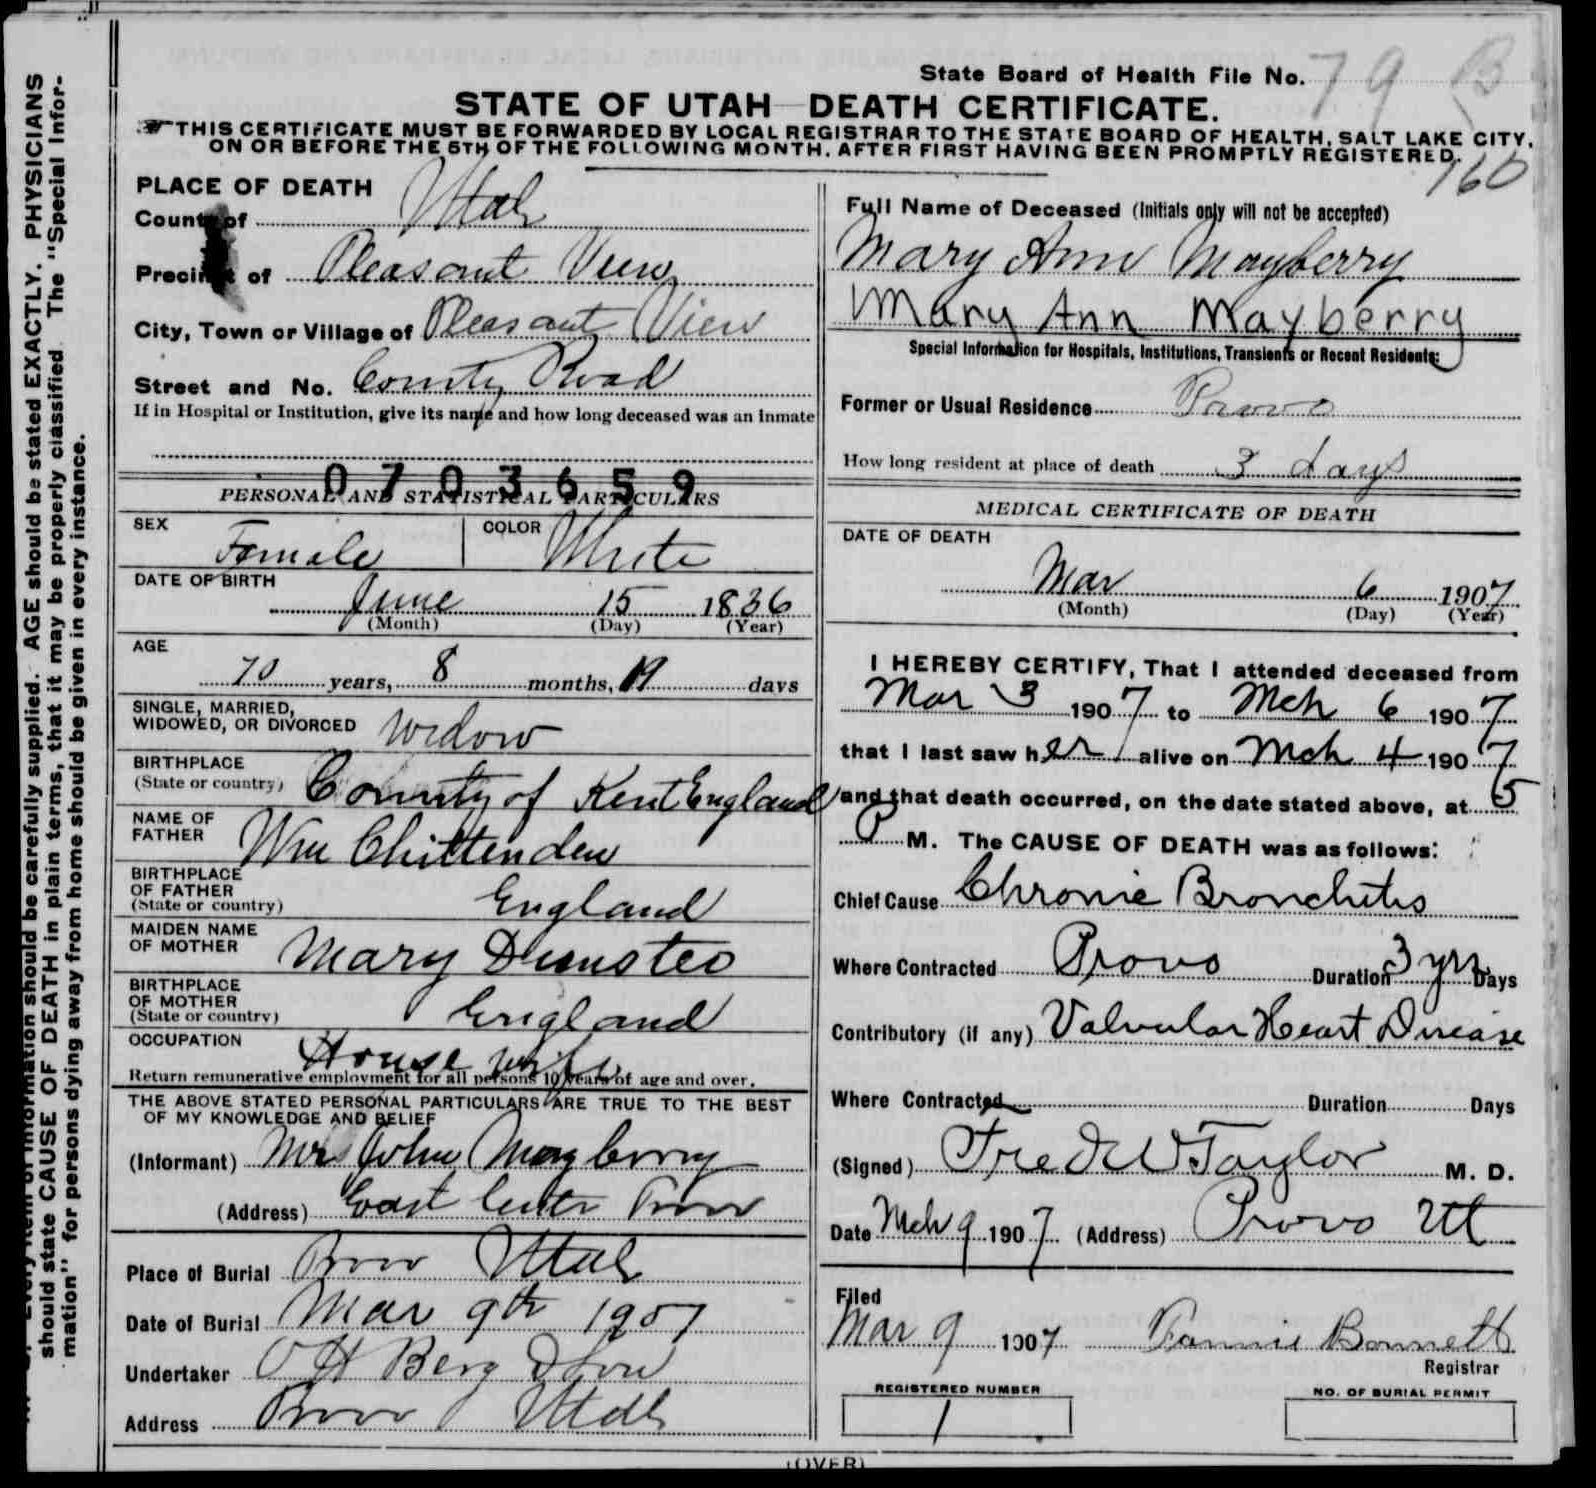 State Board of Health File No. 79 B
STATE OF UTAH—DEATH CERTIFICATE.
THIS CERTIFICATE MUST BE FORWARDED BY LOCAL REGISTRAR TO THE STATE BOARD OF HEALTH, SALT LAKE CITY,
ON OR BEFORE THE 5TH OF THE FOLLOWING MONTH, AFTER FIRST HAVING BEEN PROMPTLY REGISTERED.
160
PLACE OF DEATH
County of Utah
Precinct of Pleasant View
City, Town or Village of Pleasant View
Street and No. County Road
If in Hospital or Institution, give its name and how long deceased was an Inmate
0703659
PERSONAL AND STATISTICAL PARTICULARS
SEX Female COLOR White
DATE OF BIRTH
June 15 1836
(Month) (Day) (Year)
AGE
70 years, 8 months, 19 days
SINGLE, MARRIED,
WIDOWED, OR DIVORCED Widow
BIRTHPLACE
(State or country) County of Kent England
NAME OF
FATHER Wm Chittenden
BIRTHPLACE
OF FATHER
(State or country) England
MAIDEN NAME
OF MOTHER Mary
BIRTHPLACE
OF MOTHER
(State or country) England
OCCUPATION House wife
Return remunerative employment for all persons 10 years of age and over.
THE ABOVE STATED PERSONAL PARTICULARS ARE TRUE TO THE BEST
OF MY KNOWLEDGE AND BELIEF
(Informant) Mrs John Mayberry
(Address) East Center Provo
Place of Burial Provo Utah
Date of Burial Mar 9th 1907
Undertaker O H Berg & Son
Address Provo Utah
Full Name of Deceased (Initials only will not be accepted)
Mary Ann Mayberry
Mary Ann Mayberry
Special Information for Hospitals, Institutions, Transients or Recent Residents:
Former or Usual Residence Provo
How long resident at place of death 3 days
MEDICAL CERTIFICATE OF DEATH
DATE OF DEATH
Mar 6 1907
(Month) (Day) (Year)
I HEREBY CERTIFY, That I attended deceased from
Mar 3 1907 to Mch 6 1907
that I last saw her alive on Mch 4 1907
and that death occurred, on the date stated above, at 5
P M. The CAUSE OF DEATH was as follows:
Chief Cause Chronic Bronchitis
Where Contracted Provo Duration 3 yrs Days
Contributory (if any) Valvular Heart Disease
Where Contracted Duration Days
(Signed) Fred W Taylor M. D.
Date Mch 9 1907 (Address) Provo Ut
Filed
Mar 9 1907 Fannie Bonnett
Registrar
REGISTERED NUMBER
1
NO. OF BURIAL PERMIT
(OVER)
Every item of information should be carefully supplied. AGE should be stated EXACTLY. PHYSICIANS
should state CAUSE OF DEATH in plain terms, that it may be properly classified. The "Special Infor-
mation" for persons dying away from home should be given in every instance.